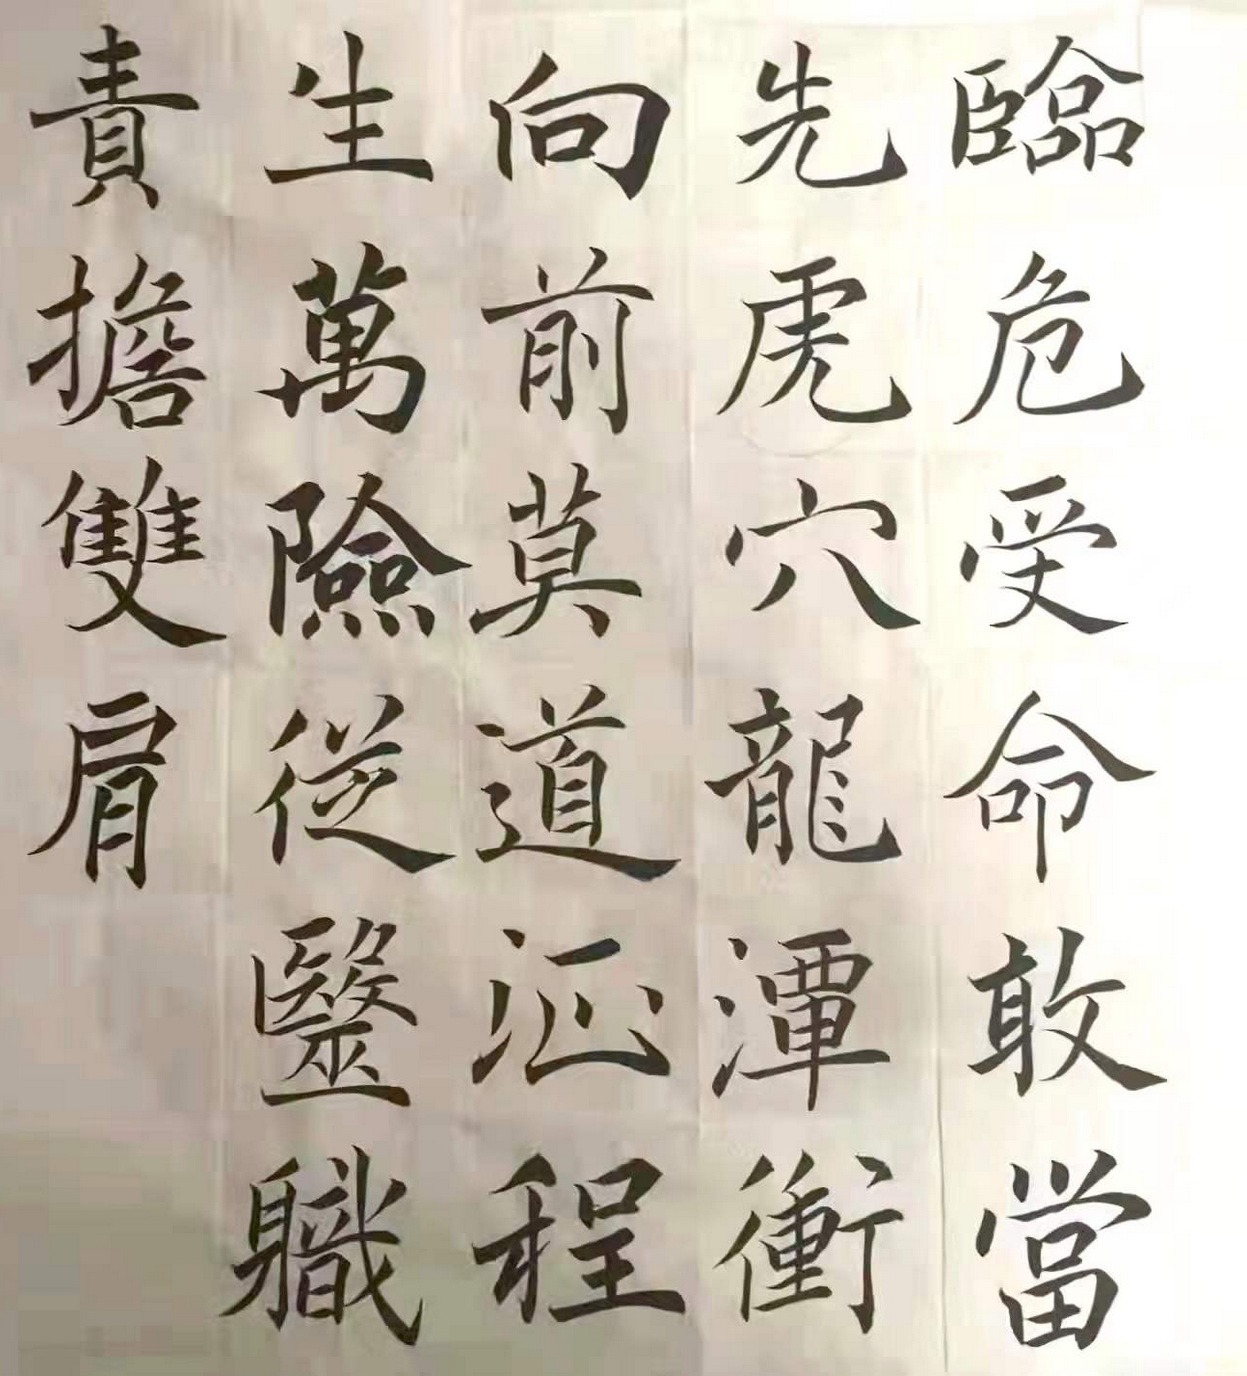 臨危受命敢當
先虎穴龍潭衝
向前莫道征程
生萬險従毉軄
責擔雙肩